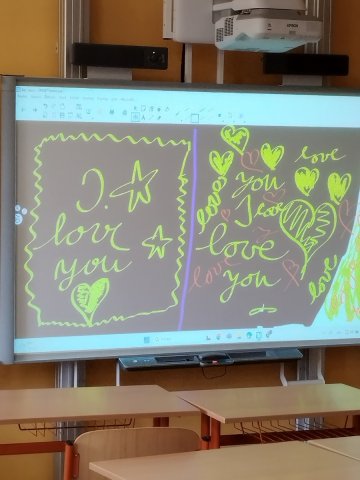 I.
love
you
love
you
I love
love
you
love
love
love
EPSON